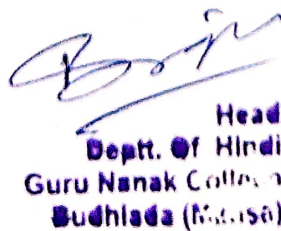 Head
Deptt. Of Hindi
Guru Nanak College
Budhlada (Mansa)